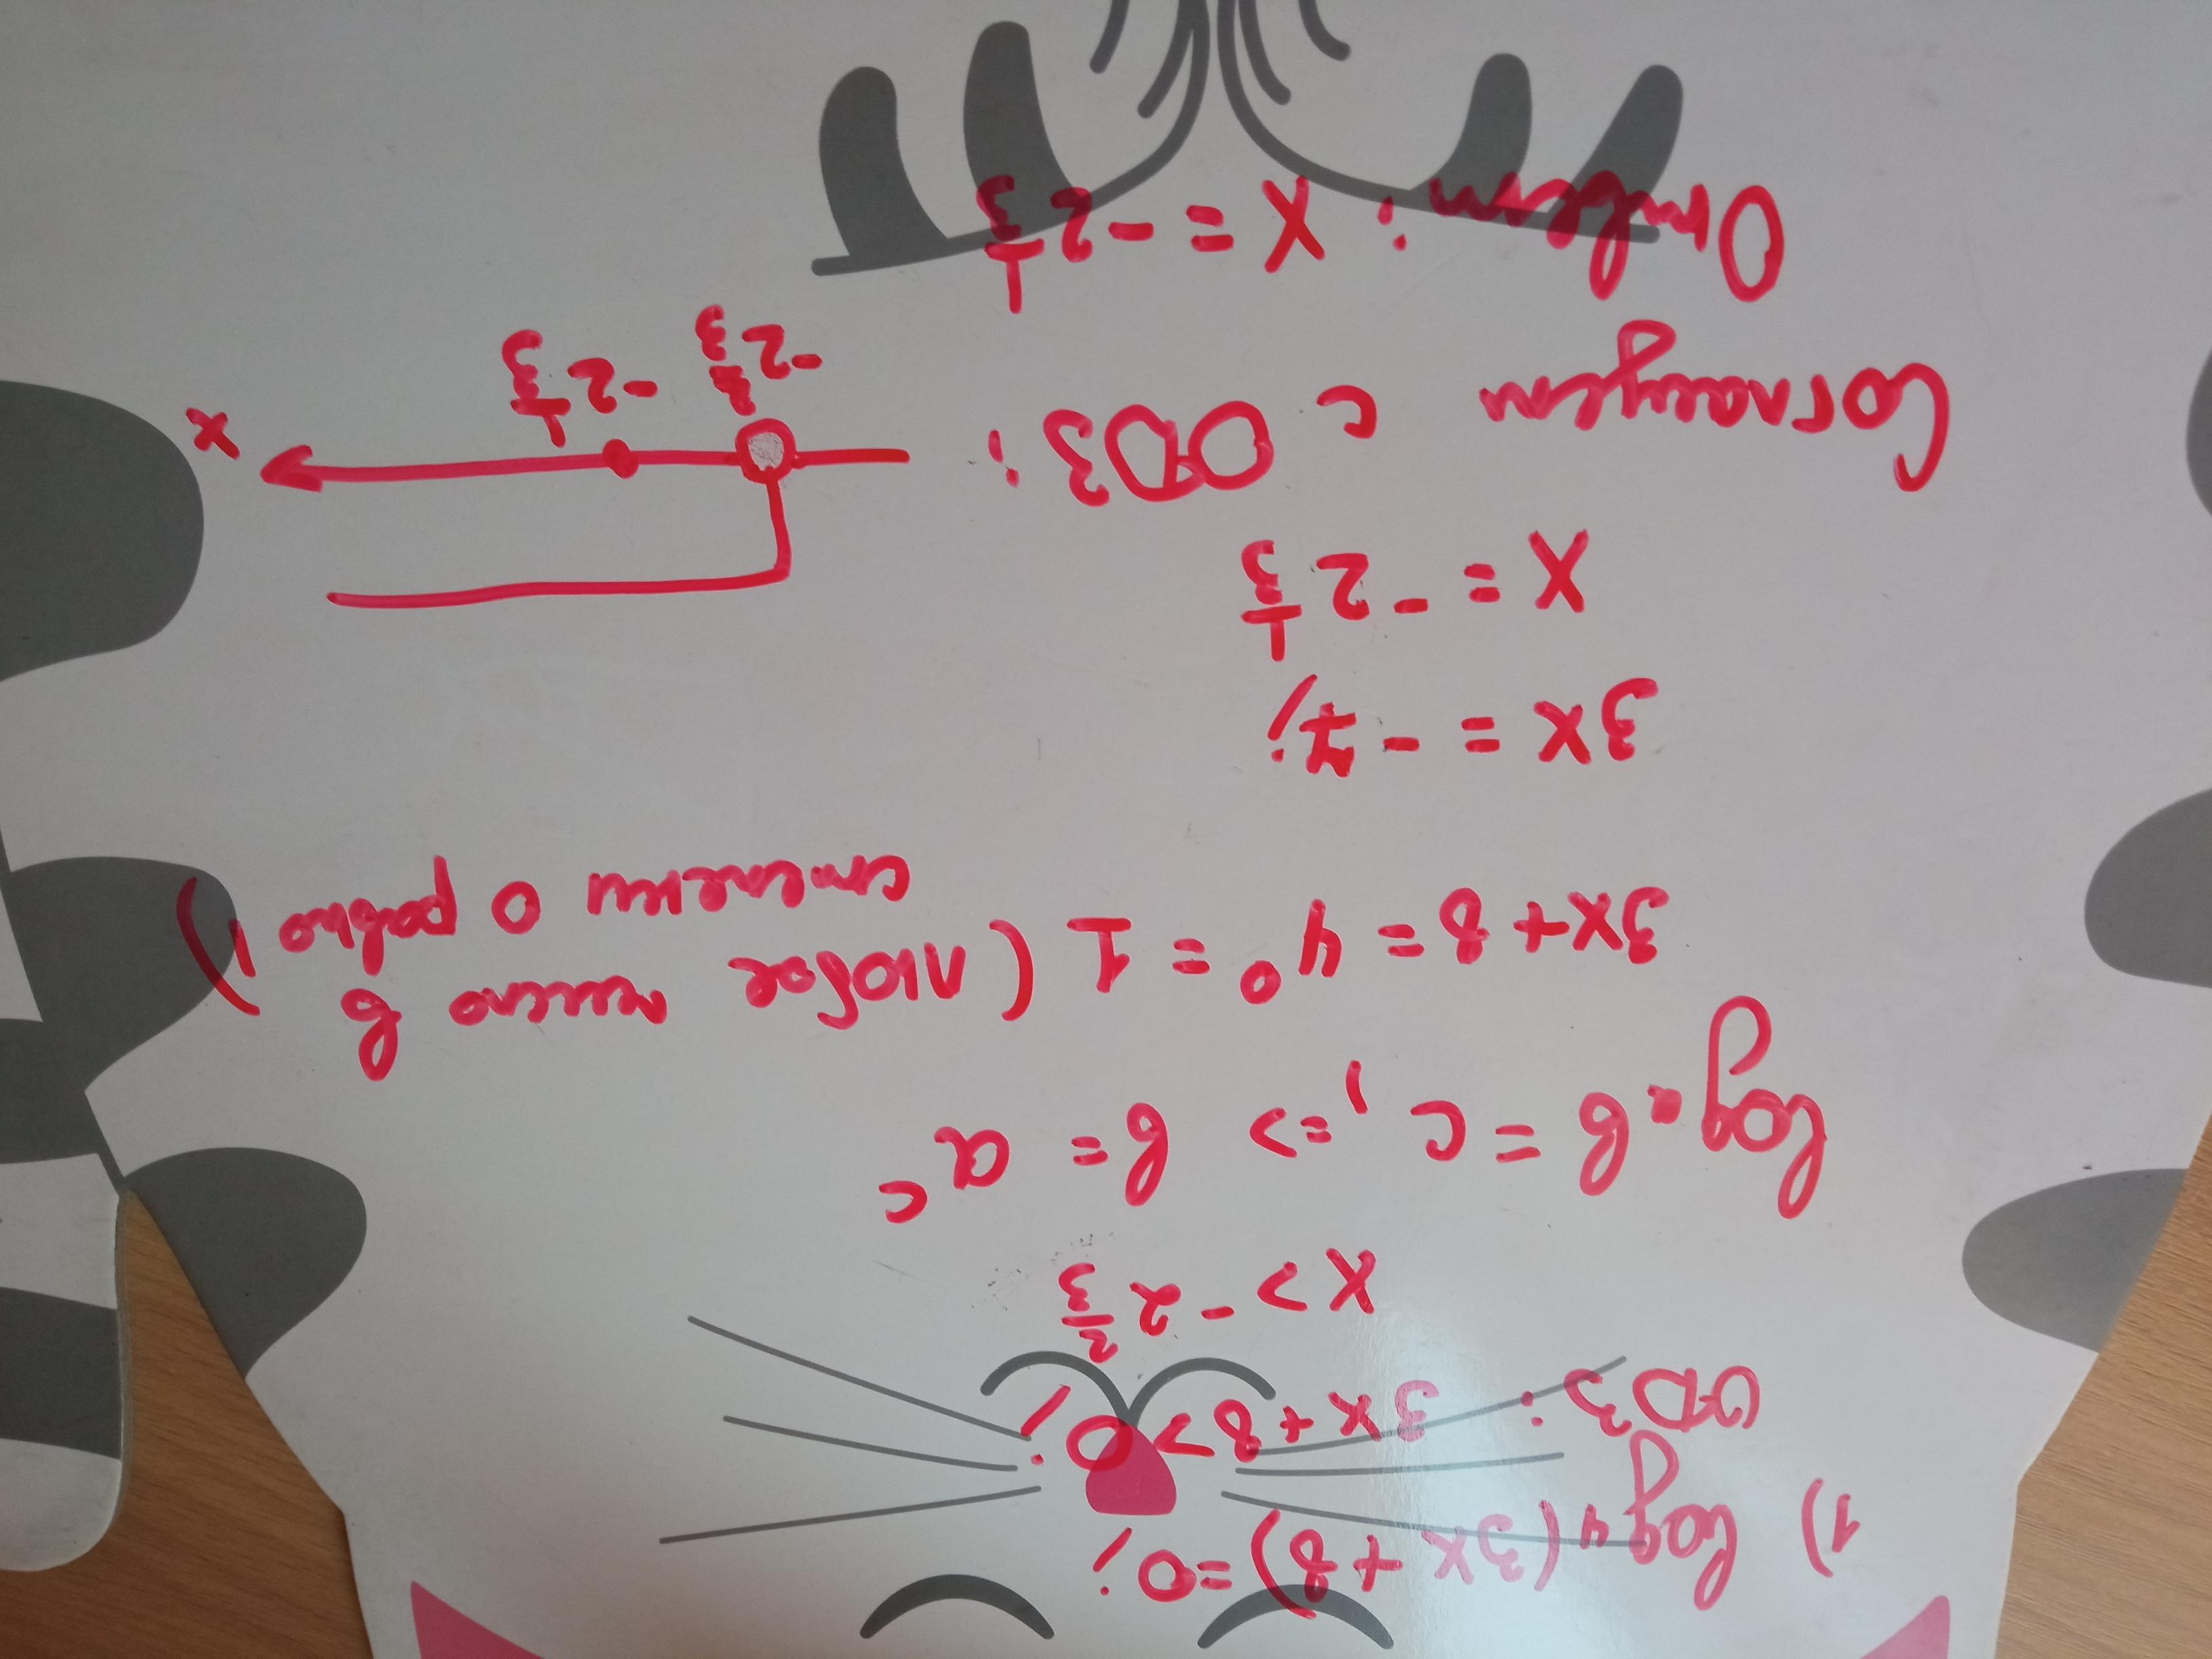 1) log₄(3x+8)=0;
ОДЗ: 3x+8>0;
x > -2 2/3
logₐb = c, => b = aᶜ
3x+8=4⁰=1 (любое число в
степени 0 равно 1)
3x = -7;
x = -2 1/3
Согласуем с ОДЗ:
-2 2/3 -2 1/3 x
Ответ: x = -2 1/3